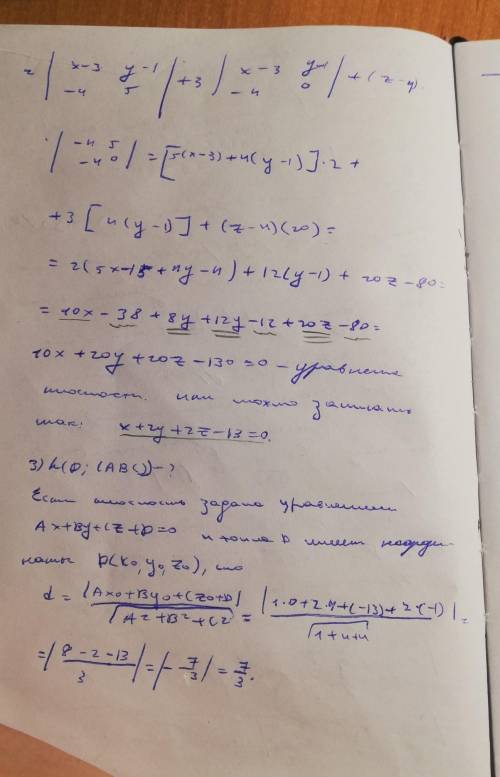 2 | x-3 y-1 -4 5 | + 3 | x-3 y-1 -4 0 | + (z-4).
· | -4 5 -4 0 | = [5(x-3) + 4(y-1)]·2 +
+3 [4(y-1)] + (z-4)(20) =
= 2(5x-15 + 4y-4) + 12(y-1) + 20z-80=
= 10x - 38 + 8y + 12y - 12 + 20z - 80=
10x + 20y + 20z - 130 = 0 - уравнение
плоскости. или можно записать
так: x + 2y + 2z - 13 = 0.
3) h(D; (ABC)) - ?
Если плоскость задана уравнением
Ax + By + Cz + D = 0 и точка D имеет коорди-
наты D(x₀, y₀, z₀), то
d = |Ax₀ + By₀ + Cz₀ + D| / √(A² + B² + C²) = |1·0 + 2·4 + (-13) + 2·(-1)| / √(1+4+4) =
= |(8 - 2 - 13) / 3| = |-7/3| = 7/3.